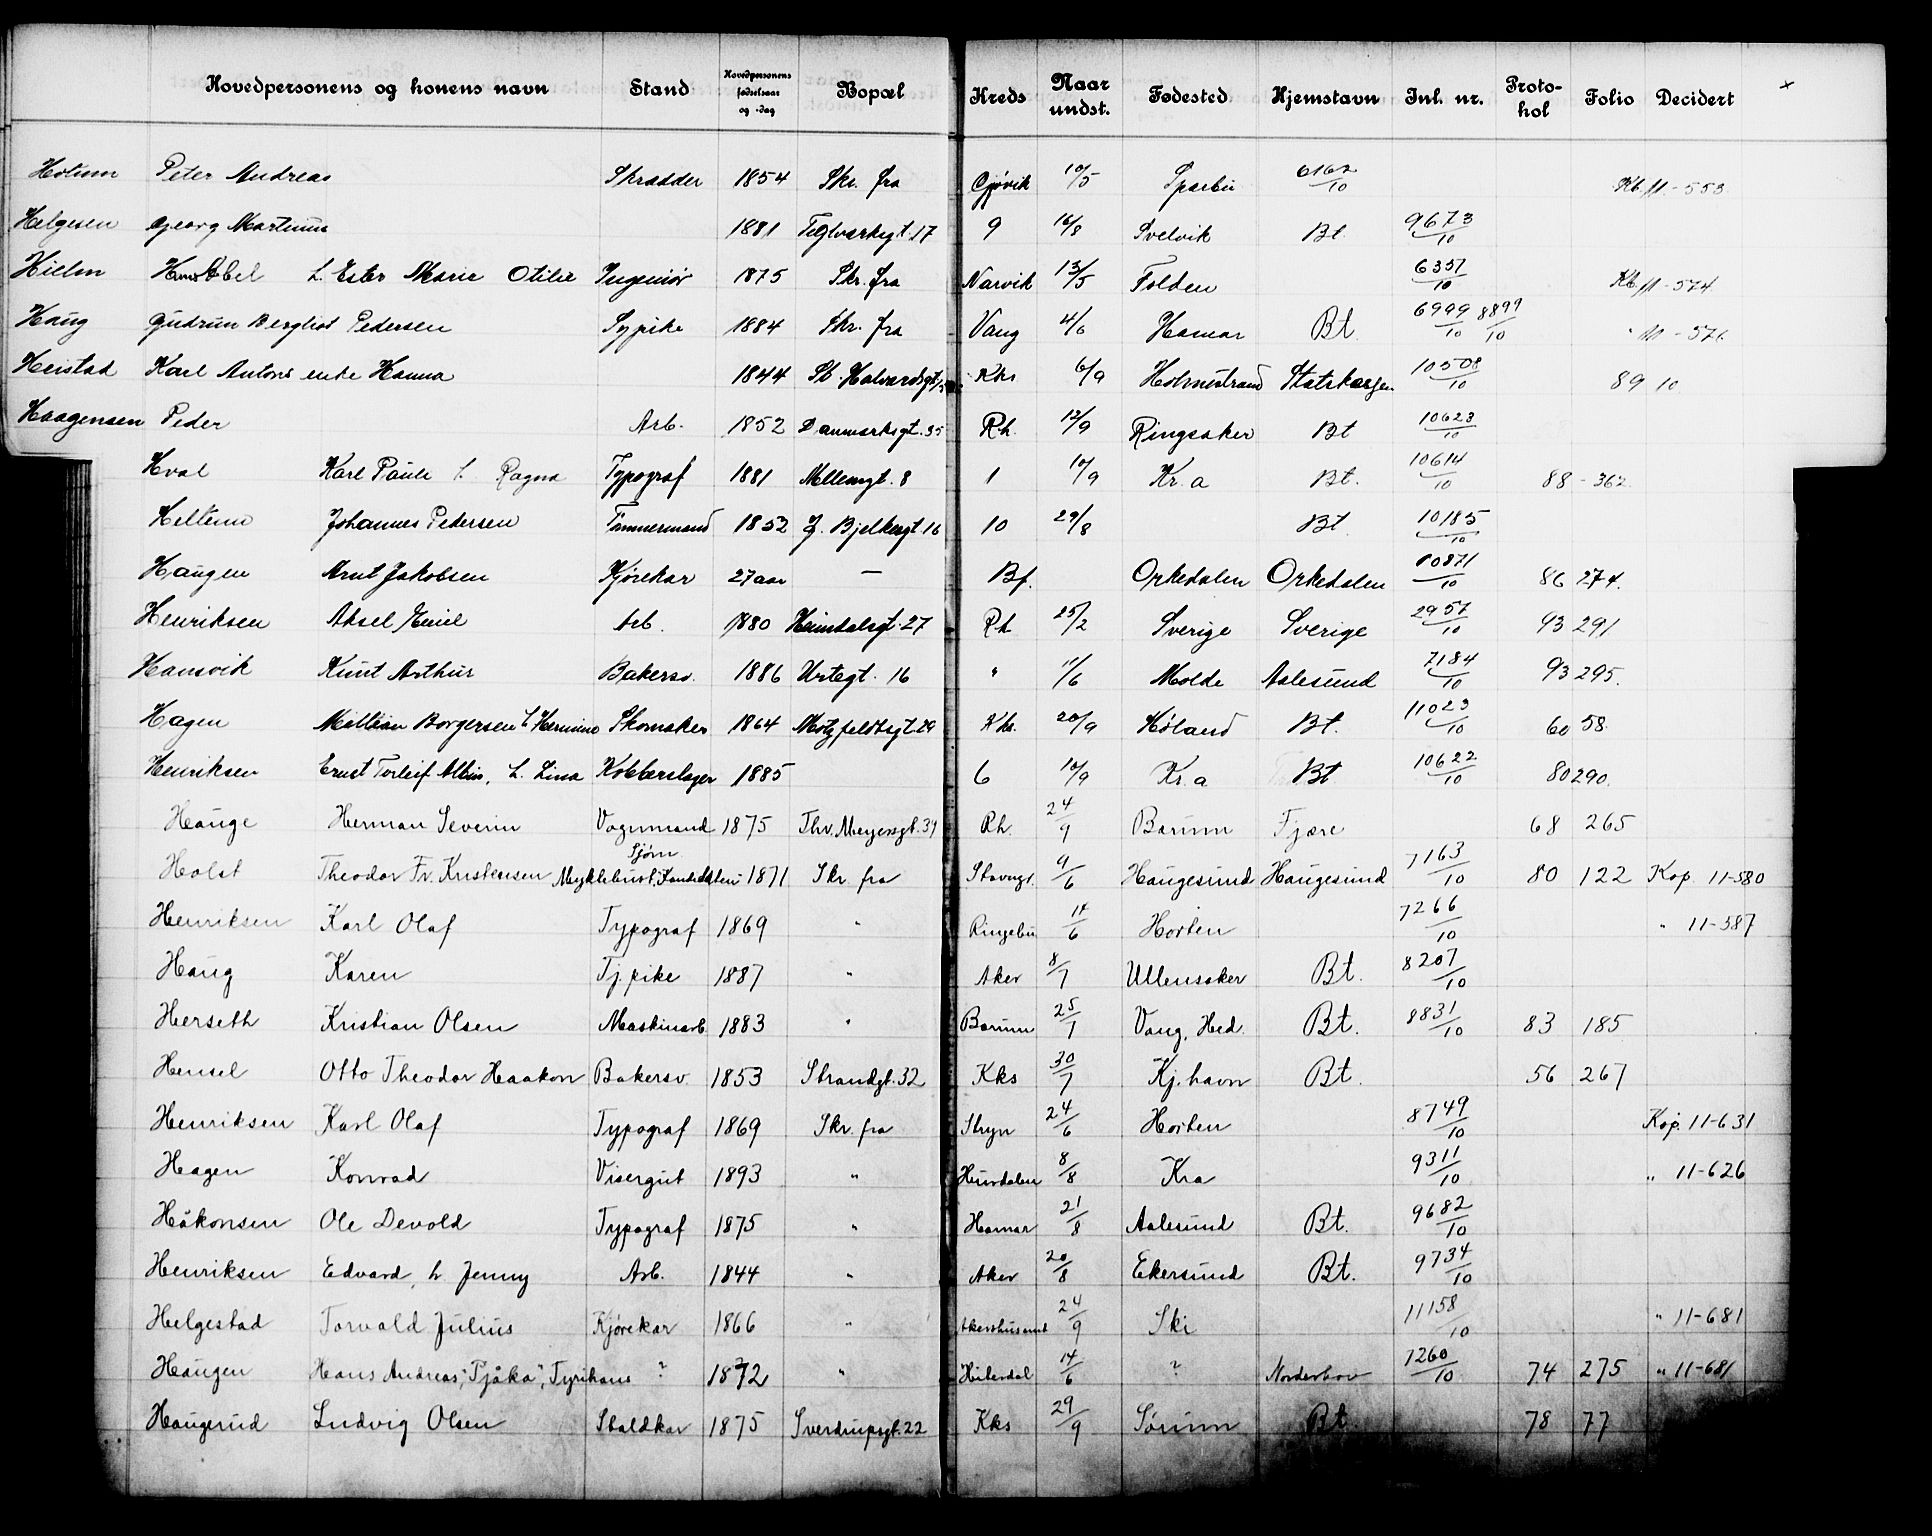 Hovedpersonens og konens navn Stand Hovedpersonens fødselsaar og -dag Bopæl Kreds Naar undst. Fødested Hjemstavn Inl. nr. Protokol Folio Decidert +
Holum Peter Andreas Skrædder 1854 Skr. fra Gjøvik 10/5 Sparbu 6162/10 Kb. 11-553
Helgesen Georg Martinus 1881 Teglverksgt. 17 9 16/8 Svelvik Bt. 9673/10
Hielm Abel h. Ester Marie Otilie Ingeniør 1875 Skr. fra Narvik 13/5 Folden 6351/10 Kb. 11-574
Haug Gudrun Bergliot Pedersen Sypike 1884 Skr. fra Vang 4/6 Hamar Bt. 6999/10 8899/10 " 11-576
Heistad Karl Antons enke Hanna 1844 St. Halvardsgt. Khs 6/9 Holmestrand Statskasjen 10508/10 89 10
Haagensen Peder Arb. 1852 Danmarksgt. 35 Rh. 12/9 Ringsaker Bt 10623/10
Hval Karl Paule h. Ragna Typograf 1881 Mellemgt. 8 1 10/9 Kr.a Bt. 10614/10 88-362
Hellem Johannes Pedersen Tømmermand 1852 J. Bjelkesgt. 16 10 29/8 Bt 10185/10
Haugen Arnt Jakobsen Kjørekar 27 aar — Bf. Orkedalen Orkedalen 10871/10 86 274.
Henriksen Aksel Emil Arb. 1880 Heimdalsgt. 27 Rh 25/2 Sverige Sverige 2957/10 93 291
Hansvik Knut Arthur Bakersv. 1886 Urtegt. 16 " 11/6 Molde Aalesund 7184/10 93 295.
Hagen Martin Borgersen h. Hermine Skomaker 1864 Motzfeldtsgt. 29 Khs. 20/9 Høland Bt. 11023/10 60 58
Henriksen Ernst Torleif Albin, h. Lina Kobberslager 1885 6 10/9 Kr.a Bt 10622/10 80 290.
Hauge Herman Severin Vognmand 1875 Thv. Meyersgt. 39 Rh. 24/9 Bærum Fjære 68 265
Holst Theodor Fr. Kristensen Myklebust, "Kandidaten" Sjøm. 1871 Skr. fra Stavngr. 9/6 Haugesund Haugesund 7163/10 80 122 Kop. 11-580
Henriksen Karl Olaf Typograf 1869 " Ringebu 14/6 Horten 7266/10 " 11-587
Haug Karen Tj.pike 1887 " Aker 8/7 Ullensaker Bt. 8207/10
Herseth Kristian Olsen Maskinarb. 1883 " Bærum 25/7 Vang, Hed. Bt. 8831/10 83 185
Hensel Otto Theodor Haakon Bakersv. 1853 Strandgt. 32 Kks 30/7 Kj.havn Bt. 56 267
Henriksen Karl Olaf Typograf 1869 Skr. fra Stryn 24/6 Horten 8749/10 Kop. 11-631
Hagen Konrad Visergut 1893 " Hurdalen 8/8 Kra 9311/10 " 11-626
Håkonsen Ole Devold Typograf 1875 " Hamar 21/8 Aalesund Bt. 9682/10
Henriksen Edvard, h. Jenny Arb. 1844 " Aker 20/8 Ekersund Bt. 9734/10
Helgestad Torvald Julius Kjørekar 1866 " Akershusamt 24/9 Ski 11158/10 " 11-681
Haugen Hans Andreas, "Pjåka", Tyrihans ? 1872 " Hiterdal 14/6 ? Norderhov 1260/10 74 275 " 11-681
Haugerud Ludvig Olsen Staldkar 1875 Sverdrupsgt. 22 Kks 29/9 Sørum Bt. 78 77